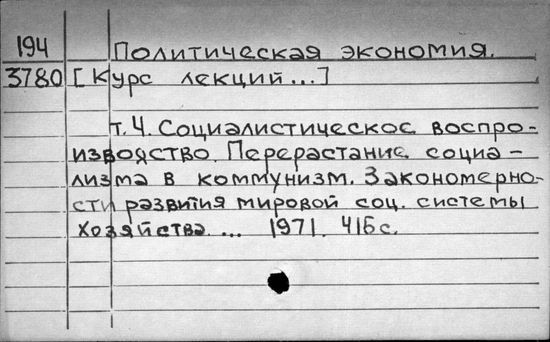 194 Политическая экономия.
3780 [Курс лекций...]
т.4. Социалистическое воспро-
изводство. Перерастание социа-
лизма в коммунизм. Закономерно-
сти развития мировой соц. системы
хозяйства. ... 1971. 416с.